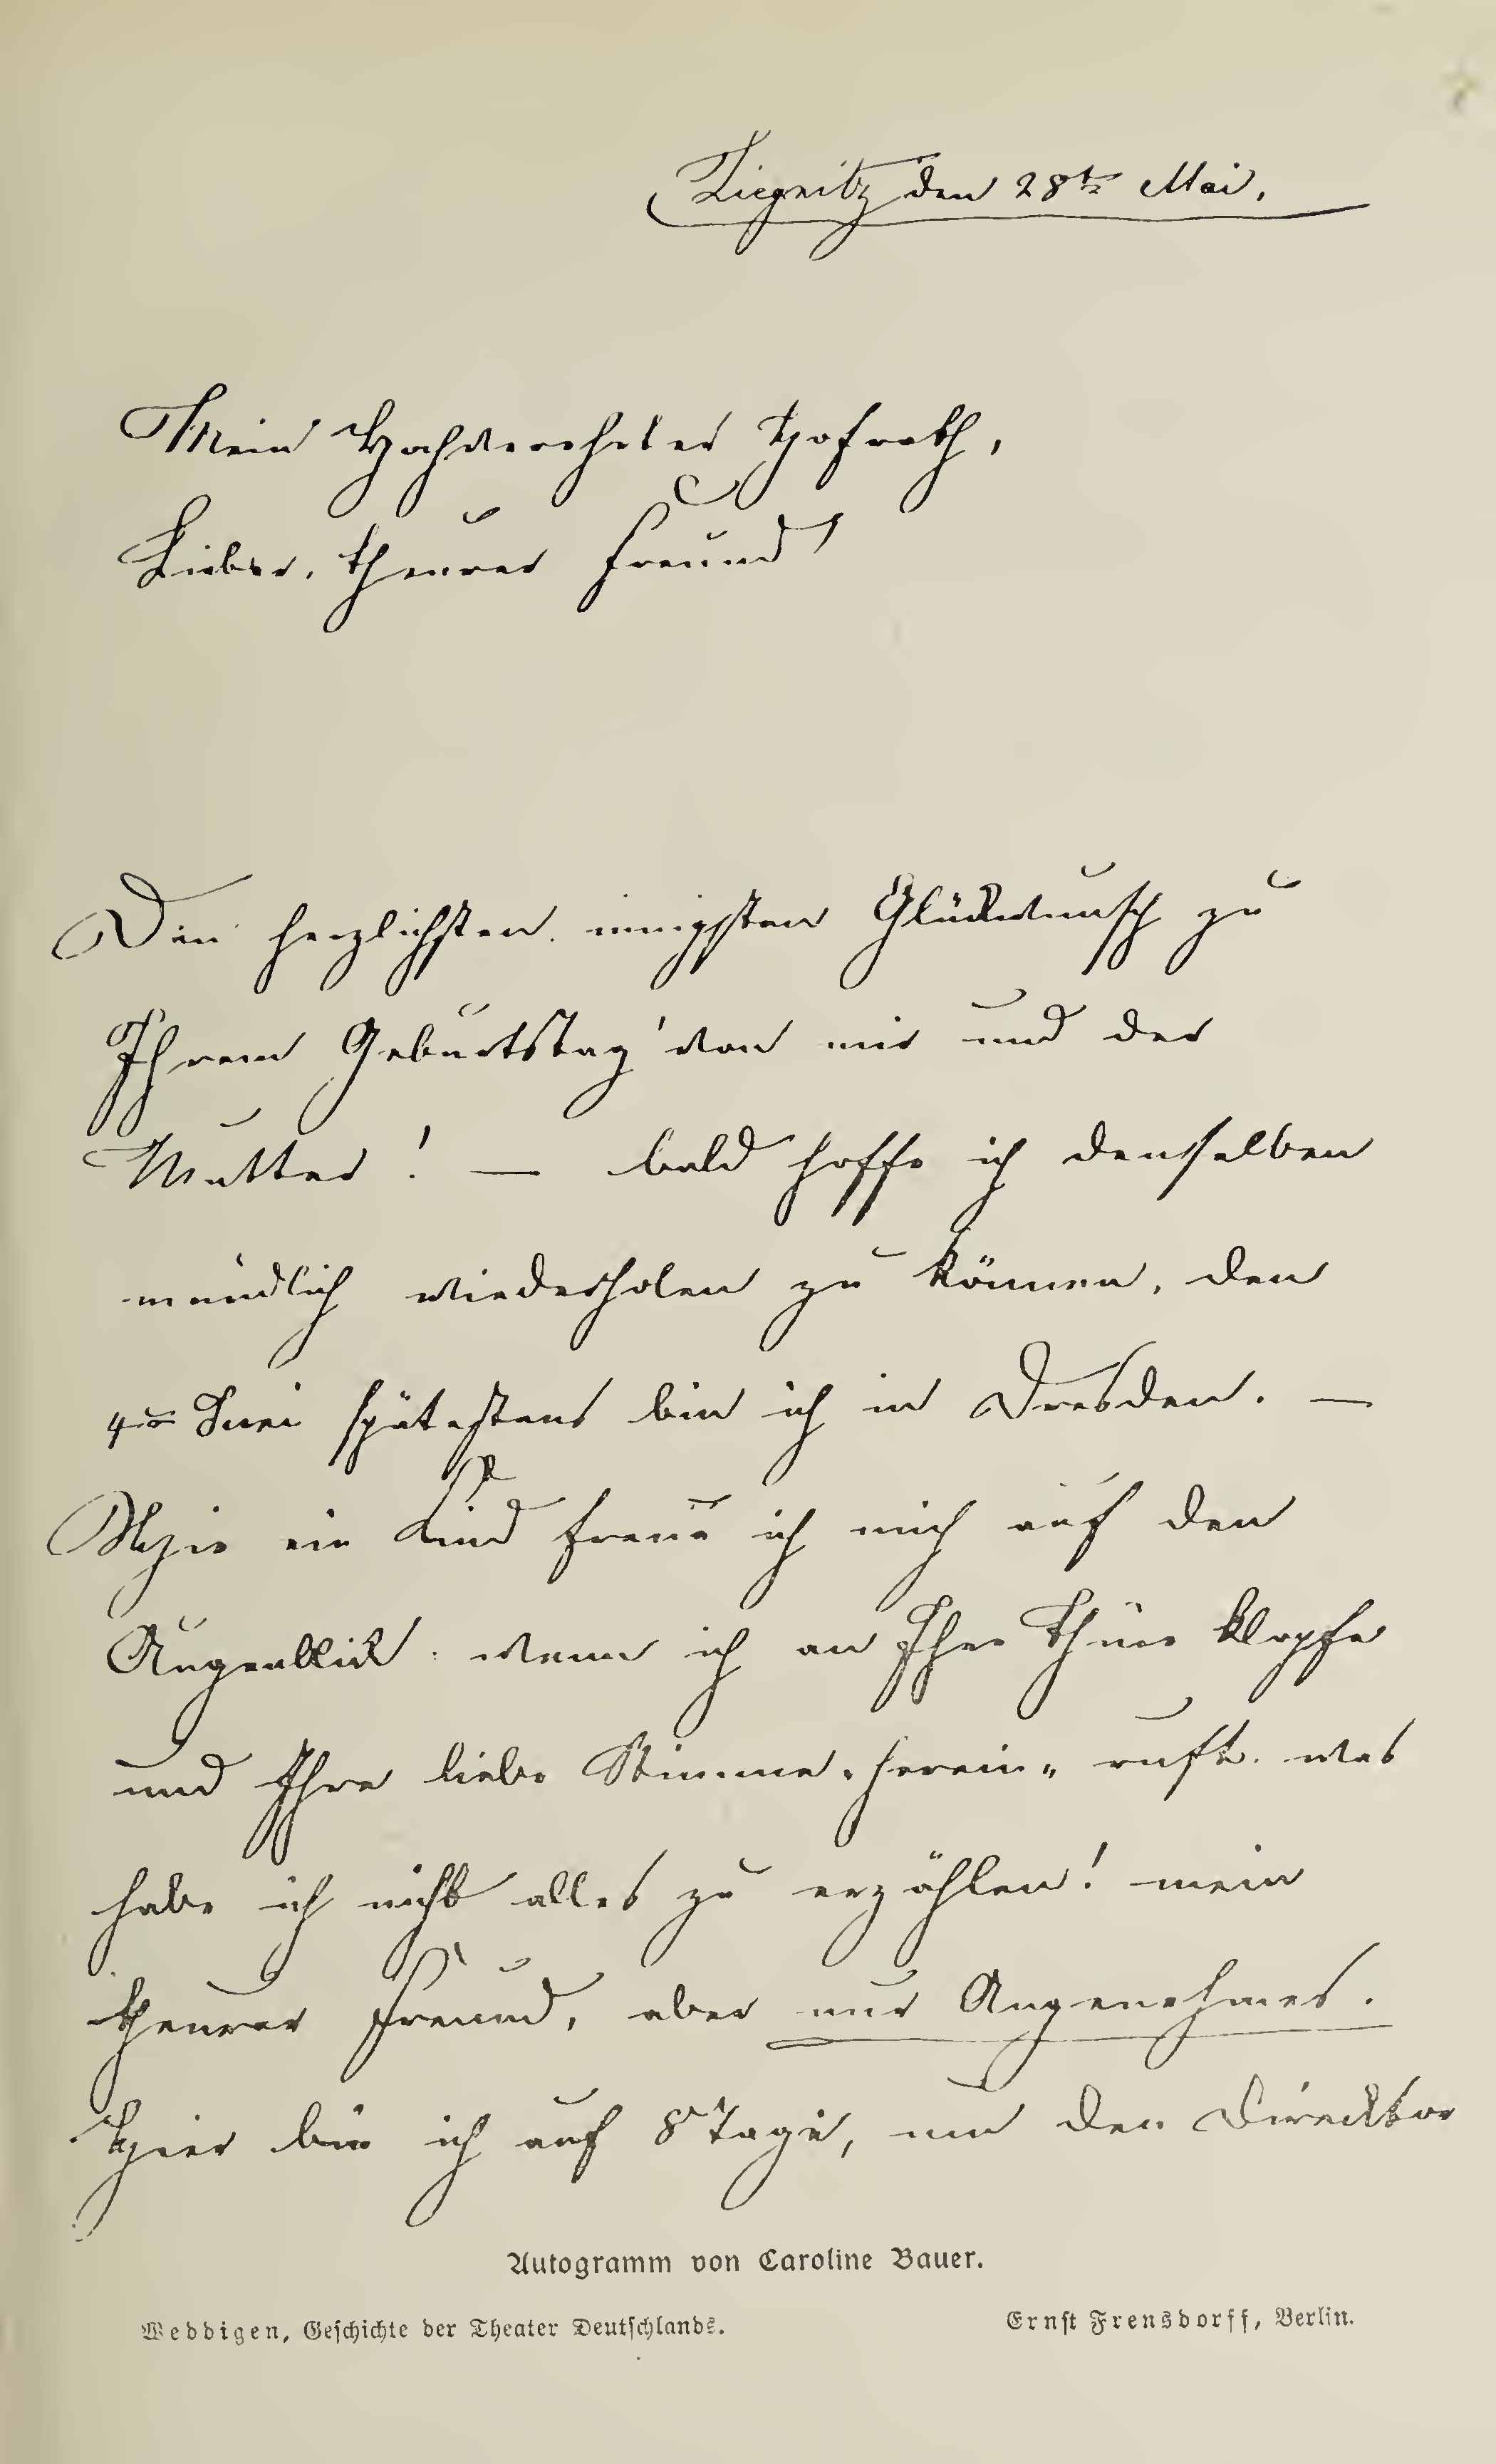 Liegnitz den 28ten Mai.
Mein Hochverehrter Hofrath,
Lieber, theurer Freund!
Den herzlichsten, innigsten Glückwunsch zu
Ihrem Geburtstag von mir und der
Mutter! — bald hoffe ich denselben
mündlich wiederholen zu können, den
4ten Juni spätestens bin ich in Dresden. —
Wie ein Kind freue ich mich auf den
Augenblick, wenn ich an Ihre Thüre klopfe
und Ihre liebe Stimme „herein" ruft. was
habe ich nicht alles zu erzählen! mein
theurer Freund, aber nur Angenehmes.
Hier bin ich auf 8 Tage, um den Direcktor
Autogramm von Caroline Bauer.
Weddigen, Geschichte der Theater Deutschlands.
Ernst Frensdorff, Berlin.